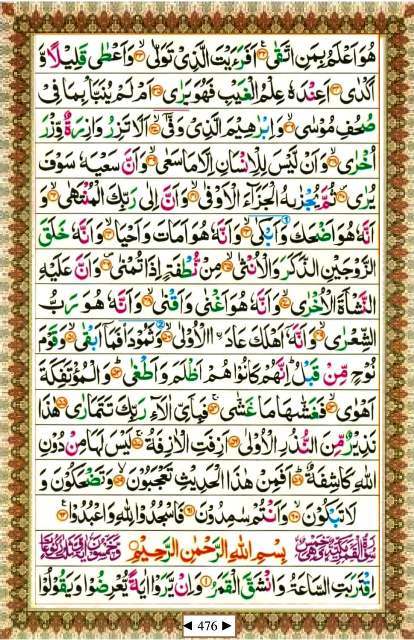 هُوَ اَعْلَمُ بِمَنِ اتَّقٰى ۝۳۲ اَفَرَءَيْتَ الَّذِىْ تَوَلّٰى ۝۳۳ وَاَعْطٰى قَلِيْلًا وَّ
اَكْدٰى ۝۳۴ اَعِنْدَهٗ عِلْمُ الْغَيْبِ فَهُوَ يَرٰى ۝۳۵ اَمْ لَمْ يُنَبَّاْ بِمَا فِىْ
صُحُفِ مُوْسٰى ۝۳۶ وَاِبْرٰهِيْمَ الَّذِىْ وَفّٰى ۝۳۷ اَلَّا تَزِرُ وَازِرَةٌ وِّزْرَ
اُخْرٰى ۝۳۸ وَاَنْ لَّيْسَ لِلْاِنْسَانِ اِلَّا مَا سَعٰى ۝۳۹ وَاَنَّ سَعْيَهٗ سَوْفَ
يُرٰى ۝۴۰ ثُمَّ يُجْزٰىهُ الْجَزَآءَ الْاَوْفٰى ۝۴۱ وَاَنَّ اِلٰى رَبِّكَ الْمُنْتَهٰى ۝۴۲ وَ
اَنَّهٗ هُوَ اَضْحَكَ وَاَبْكٰى ۝۴۳ وَاَنَّهٗ هُوَ اَمَاتَ وَاَحْيَا ۝۴۴ وَاَنَّهٗ خَلَقَ
الزَّوْجَيْنِ الذَّكَرَ وَالْاُنْثٰى ۝۴۵ مِنْ نُّطْفَةٍ اِذَا تُمْنٰى ۝۴۶ وَاَنَّ عَلَيْهِ
النَّشْاَةَ الْاُخْرٰى ۝۴۷ وَاَنَّهٗ هُوَ اَغْنٰى وَاَقْنٰى ۝۴۸ وَاَنَّهٗ هُوَ رَبُّ
الشِّعْرٰى ۝۴۹ وَاَنَّهٗۤ اَهْلَكَ عَادَا ۨالْاُوْلٰى ۝۵۰ وَثَمُوْدَا۟ فَمَاۤ اَبْقٰى ۝۵۱ وَقَوْمَ
نُوْحٍ مِّنْ قَبْلُ ؕ اِنَّهُمْ كَانُوْا هُمْ اَظْلَمَ وَاَطْغٰى ۝۵۲ وَالْمُؤْتَفِكَةَ
اَهْوٰى ۝۵۳ فَغَشّٰىهَا مَا غَشّٰى ۝۵۴ فَبِاَىِّ اٰلَآءِ رَبِّكَ تَتَمَارٰى ۝۵۵ هٰذَا
نَذِيْرٌ مِّنَ النُّذُرِ الْاُوْلٰى ۝۵۶ اَزِفَتِ الْاٰزِفَةُ ۝۵۷ لَيْسَ لَهَا مِنْ دُوْنِ
اللّٰهِ كَاشِفَةٌ ۝۵۸ اَفَمِنْ هٰذَا الْحَدِيْثِ تَعْجَبُوْنَ ۝۵۹ وَتَضْحَكُوْنَ وَ
لَا تَبْكُوْنَ ۝۶۰ وَاَنْتُمْ سٰمِدُوْنَ ۝۶۱ فَاسْجُدُوْا لِلّٰهِ وَاعْبُدُوْا ۝۶۲
بِسْمِ اللّٰهِ الرَّحْمٰنِ الرَّحِيْمِ
اِقْتَرَبَتِ السَّاعَةُ وَانْشَقَّ الْقَمَرُ ۝۱ وَاِنْ يَّرَوْا اٰيَةً يُّعْرِضُوْا وَيَقُوْلُوْا
◄ 476 ►